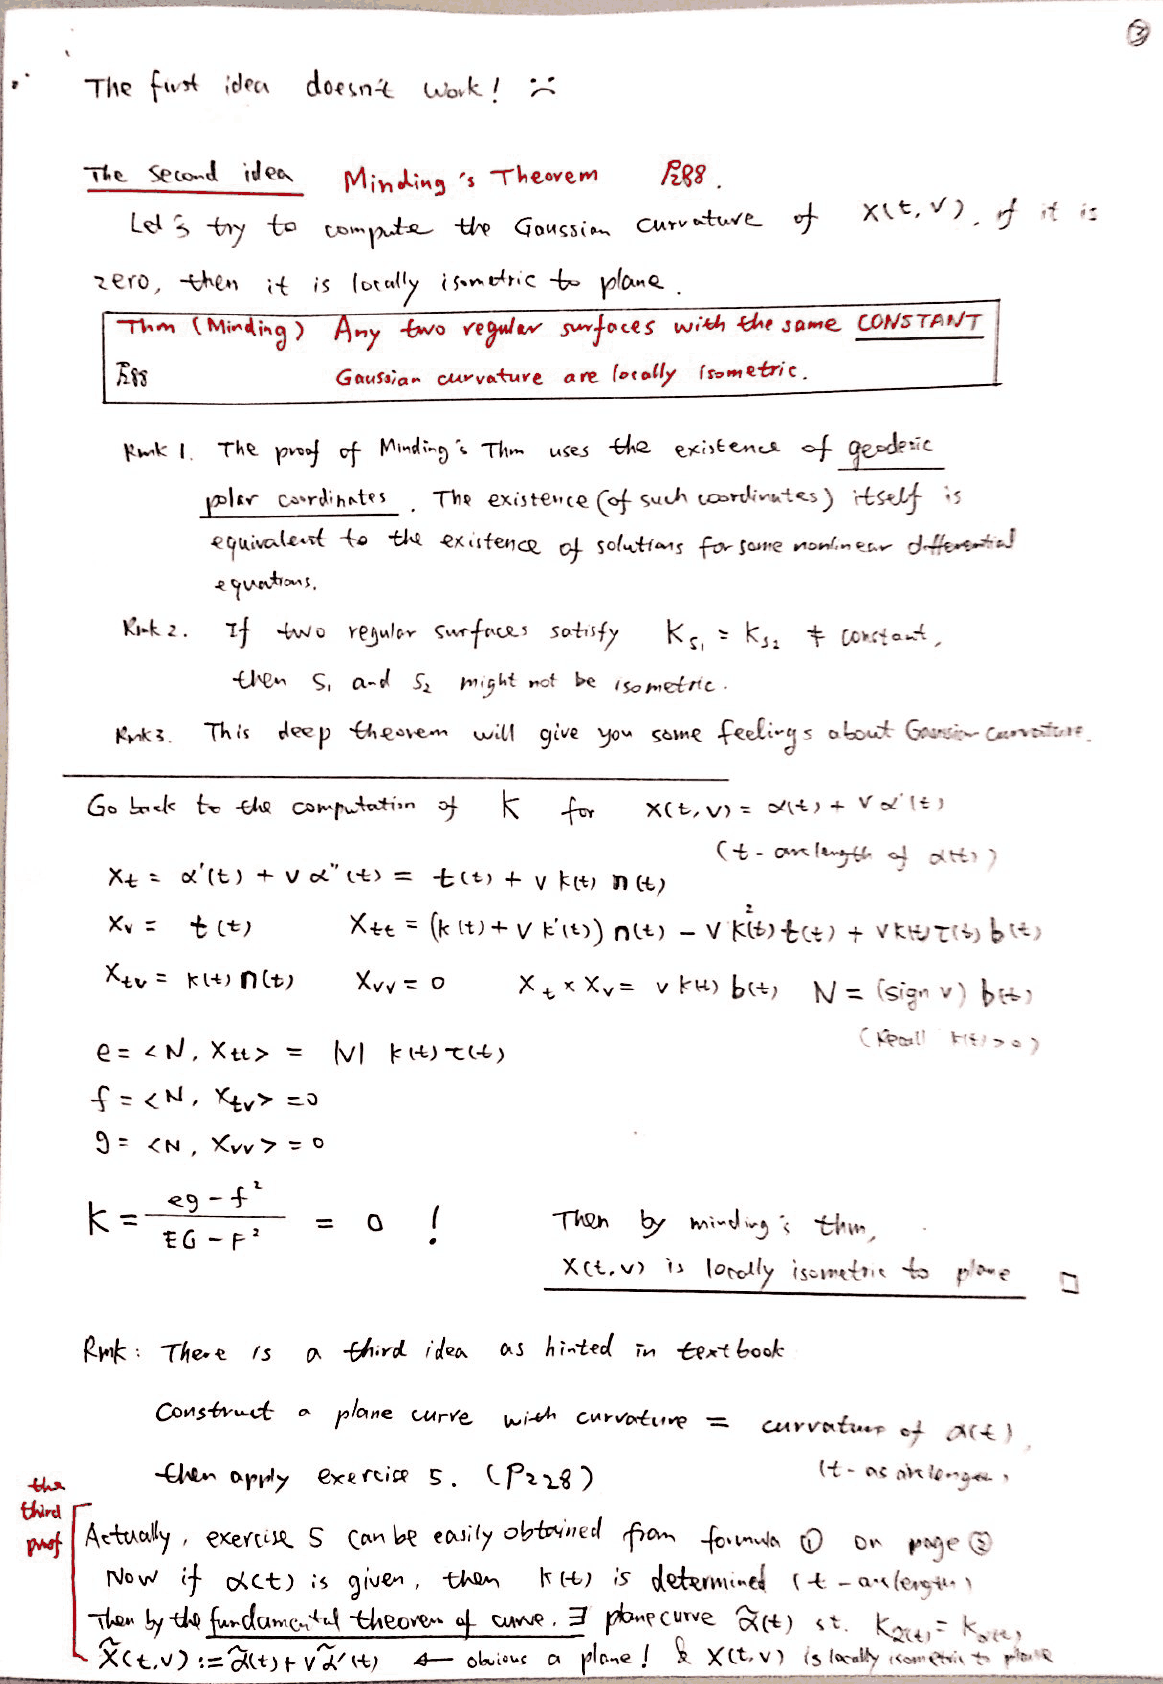 ③
The first idea doesn't work! :(
The second idea Minding's Theorem P288.
Let's try to compute the Gaussian curvature of X(t,v), if it is
zero, then it is locally isometric to plane.
Thm (Minding) Any two regular surfaces with the same CONSTANT
P288 Gaussian curvature are locally isometric.
Rmk 1. The proof of Minding's Thm uses the existence of geodesic
polar coordinates. The existence (of such coordinates) itself is
equivalent to the existence of solutions for some nonlinear differential
equations.
Rmk 2. If two regular surfaces satisfy K_{S₁} = K_{S₂} ≠ constant,
then S₁ and S₂ might not be isometric.
Rmk 3. This deep theorem will give you some feelings about Gaussian curvature.
Go back to the computation of K for X(t,v) = α(t) + vα'(t)
(t - arclength of α(t))
X_t = α'(t) + vα''(t) = t(t) + v k(t) n(t)
X_v = t(t) X_tt = (k(t) + v k'(t)) n(t) − v k²(t) t(t) + v k(t) τ(t) b(t)
X_tv = k(t) n(t) X_vv = 0 X_t × X_v = v k(t) b(t) N = (sign v) b(t)
(Recall k(t)>0)
e = <N, X_tt> = |v| k(t) τ(t)
f = <N, X_tv> = 0
g = <N, X_vv> = 0
K = (eg − f²)/(EG − F²) = 0 !
Then by minding's thm,
X(t,v) is locally isometric to plane □
Rmk: There is a third idea as hinted in textbook
Construct a plane curve with curvature = curvature of α(t),
(t - as arclength)
then apply exercise 5. (P228)
the third proof
Actually, exercise 5 can be easily obtained from formula ① on page ②
Now if α(t) is given, then k(t) is determined (t - arclength)
Then by the fundamental theorem of curve, ∃ plane curve α̃(t) st. K_{α̃(t)} = K_{α(t)}
X̃(t,v) := α̃(t) + vα̃'(t) ← obvious a plane! & X(t,v) is locally isometric to plane